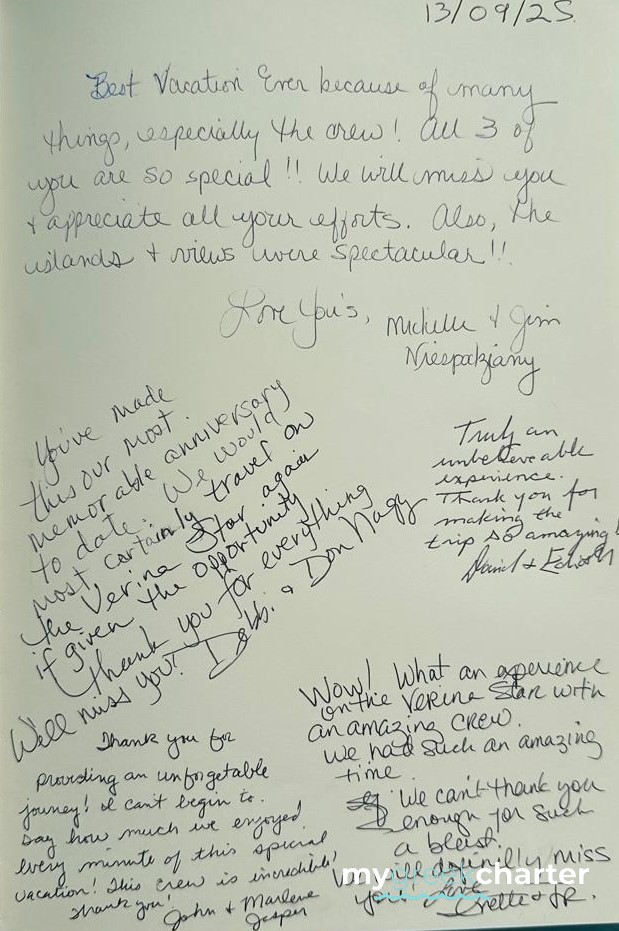 13/09/25
Best Vacation Ever because of many
things, especially the crew! All 3 of
you are so special!! We will miss you
& appreciate all your efforts. Also, the
islands & views were spectacular!!
Love You's, Michelle & Jim
You've made
this our most
memorable anniversary
to date. We would
most certainly travel on
the Verina Star again
if given the opportunity
Thank you for everything
We'll miss you! Debbi & Don Nagy
Truly an
unbelievable
experience.
Thank you for
making the
trip so amazing!
David &
Wow! What an experience
on the Verina Star with
an amazing crew.
We had such an amazing
time.
We can't thank you
enough for such
a blast.
miss
you Love
& JR.
Thank you for
providing an unforgetable
journey! I can't begin to
say how much we enjoyed
every minute of this special
vacation! This crew is incredible!
Thank you!
John & Marlene
Jasper
mygreekcharter